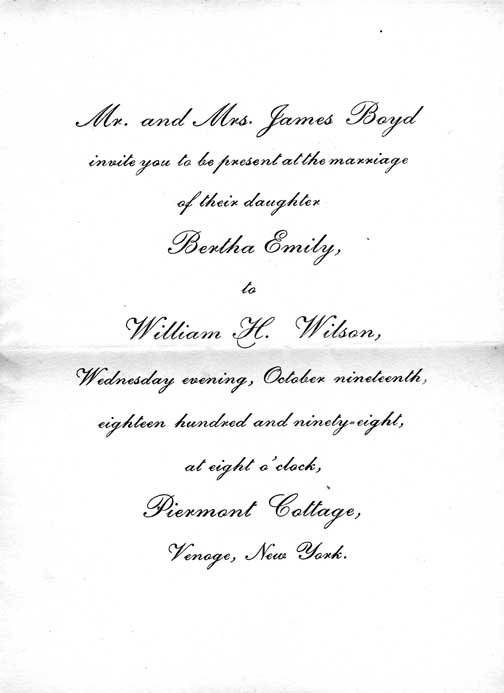 Mr. and Mrs. James Boyd
invite you to be present at the marriage
of their daughter
Bertha Emily,
to
William H. Wilson,
Wednesday evening, October nineteenth,
eighteen hundred and ninety-eight,
at eight o'clock,
Piermont Cottage,
Venoge, New York.